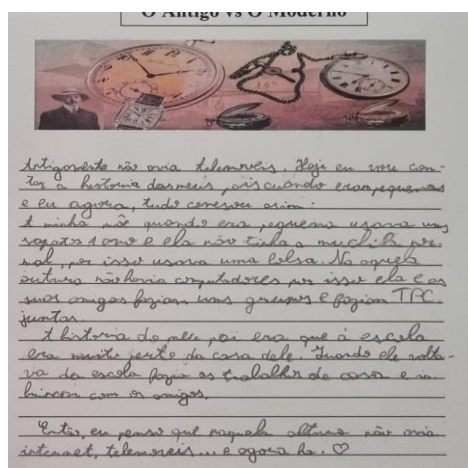 O Antigo vs O Moderno
Antigamente não avia telemoveis. Hoje eu vou con-
tar a historia dos meus pais cuando eram pequenos
e eu agora, tudo começou asim:
A minha mãe quando era pequena usava uns
sapatos 1 ano e ela não tinha a muchila nor
mal, por isso usava uma bolsa. Na aquela
autura não havia computadores por isso ela e os
suos amigos faziam uns grupos e faziam TPC
juntos.
A historia do meu pai era que á escola
era muito perto da casa dele. Quando ele volta-
va da escola fazia os trabalhos de casa e ia
brincar com os amigos.
Então, eu penso que naquela altura não avia
internet, telemoveis... e agora ha. ♡